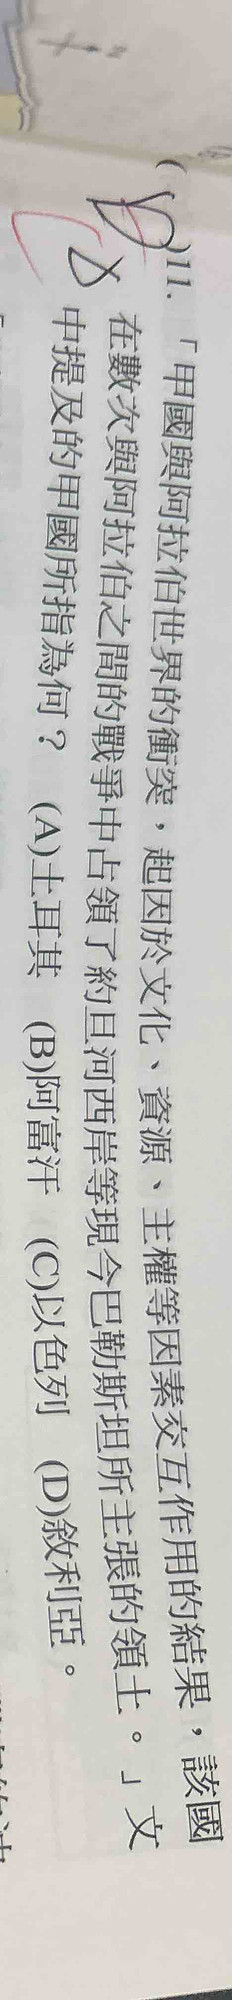 ( )11. 「甲國與阿拉伯世界的衝突，起因於文化、資源、主權等因素交互作用的結果，該國
在數次與阿拉伯之間的戰爭中占領了約旦河西岸等現今巴勒斯坦所主張的領土。」文
中提及的甲國所指為何？ (A)土耳其 (B)阿富汗 (C)以色列 (D)敘利亞。